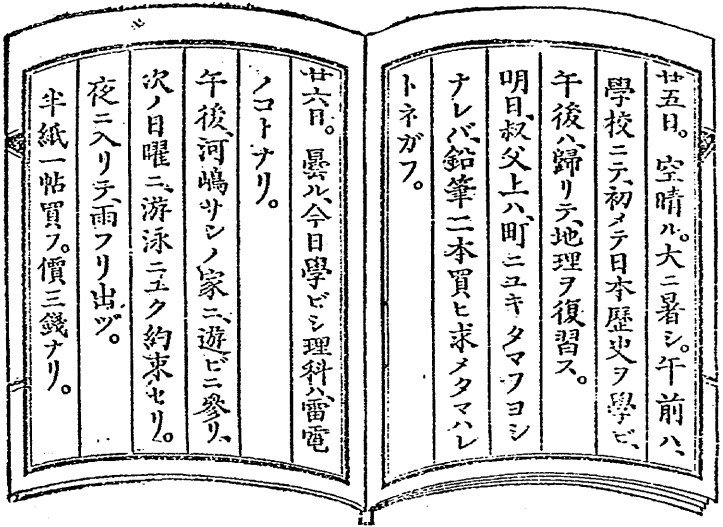 廿五日。空晴ル。大ニ暑シ。午前ハ、
學校ニテ、初メテ日本歷史ヲ學ビ、
午後ハ、歸リテ、地理ヲ復習ス。
明日、叔父上ハ、町ニユキタマフヨシ
ナレバ、鉛筆二本買ヒ求メタマハレ
トネガフ。
廿六日。曇ル、今日學ビシ理科ハ、雷電
ノコトナリ。
午後、河嶋サンノ家ニ、遊ビニ參リ、
次ノ日曜ニ、游泳ニユク約束セリ。
夜ニ入リテ、雨フリ出ヅ。
半紙一帖買フ。價三錢ナリ。